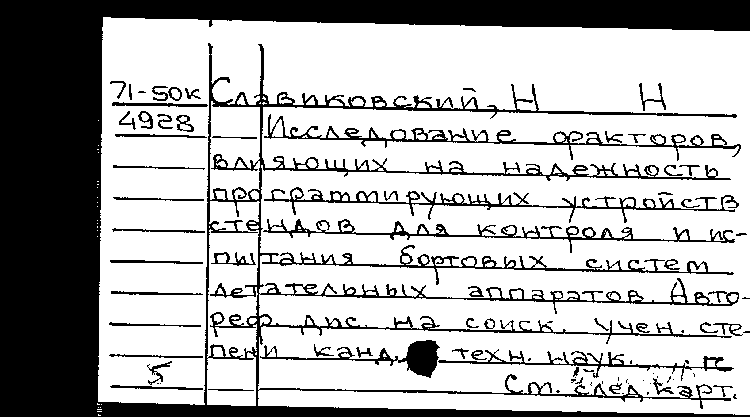 71-50к Славиковский, Н Н
4928 Исследование факторов,
влияющих на надежность
программирующих устройств
стендов для контроля и ис-
пытания бортовых систем
летательных аппаратов. Авто-
реф. дис. на соиск. учен. сте-
пени канд. техн. наук.
5 См. след. карт.